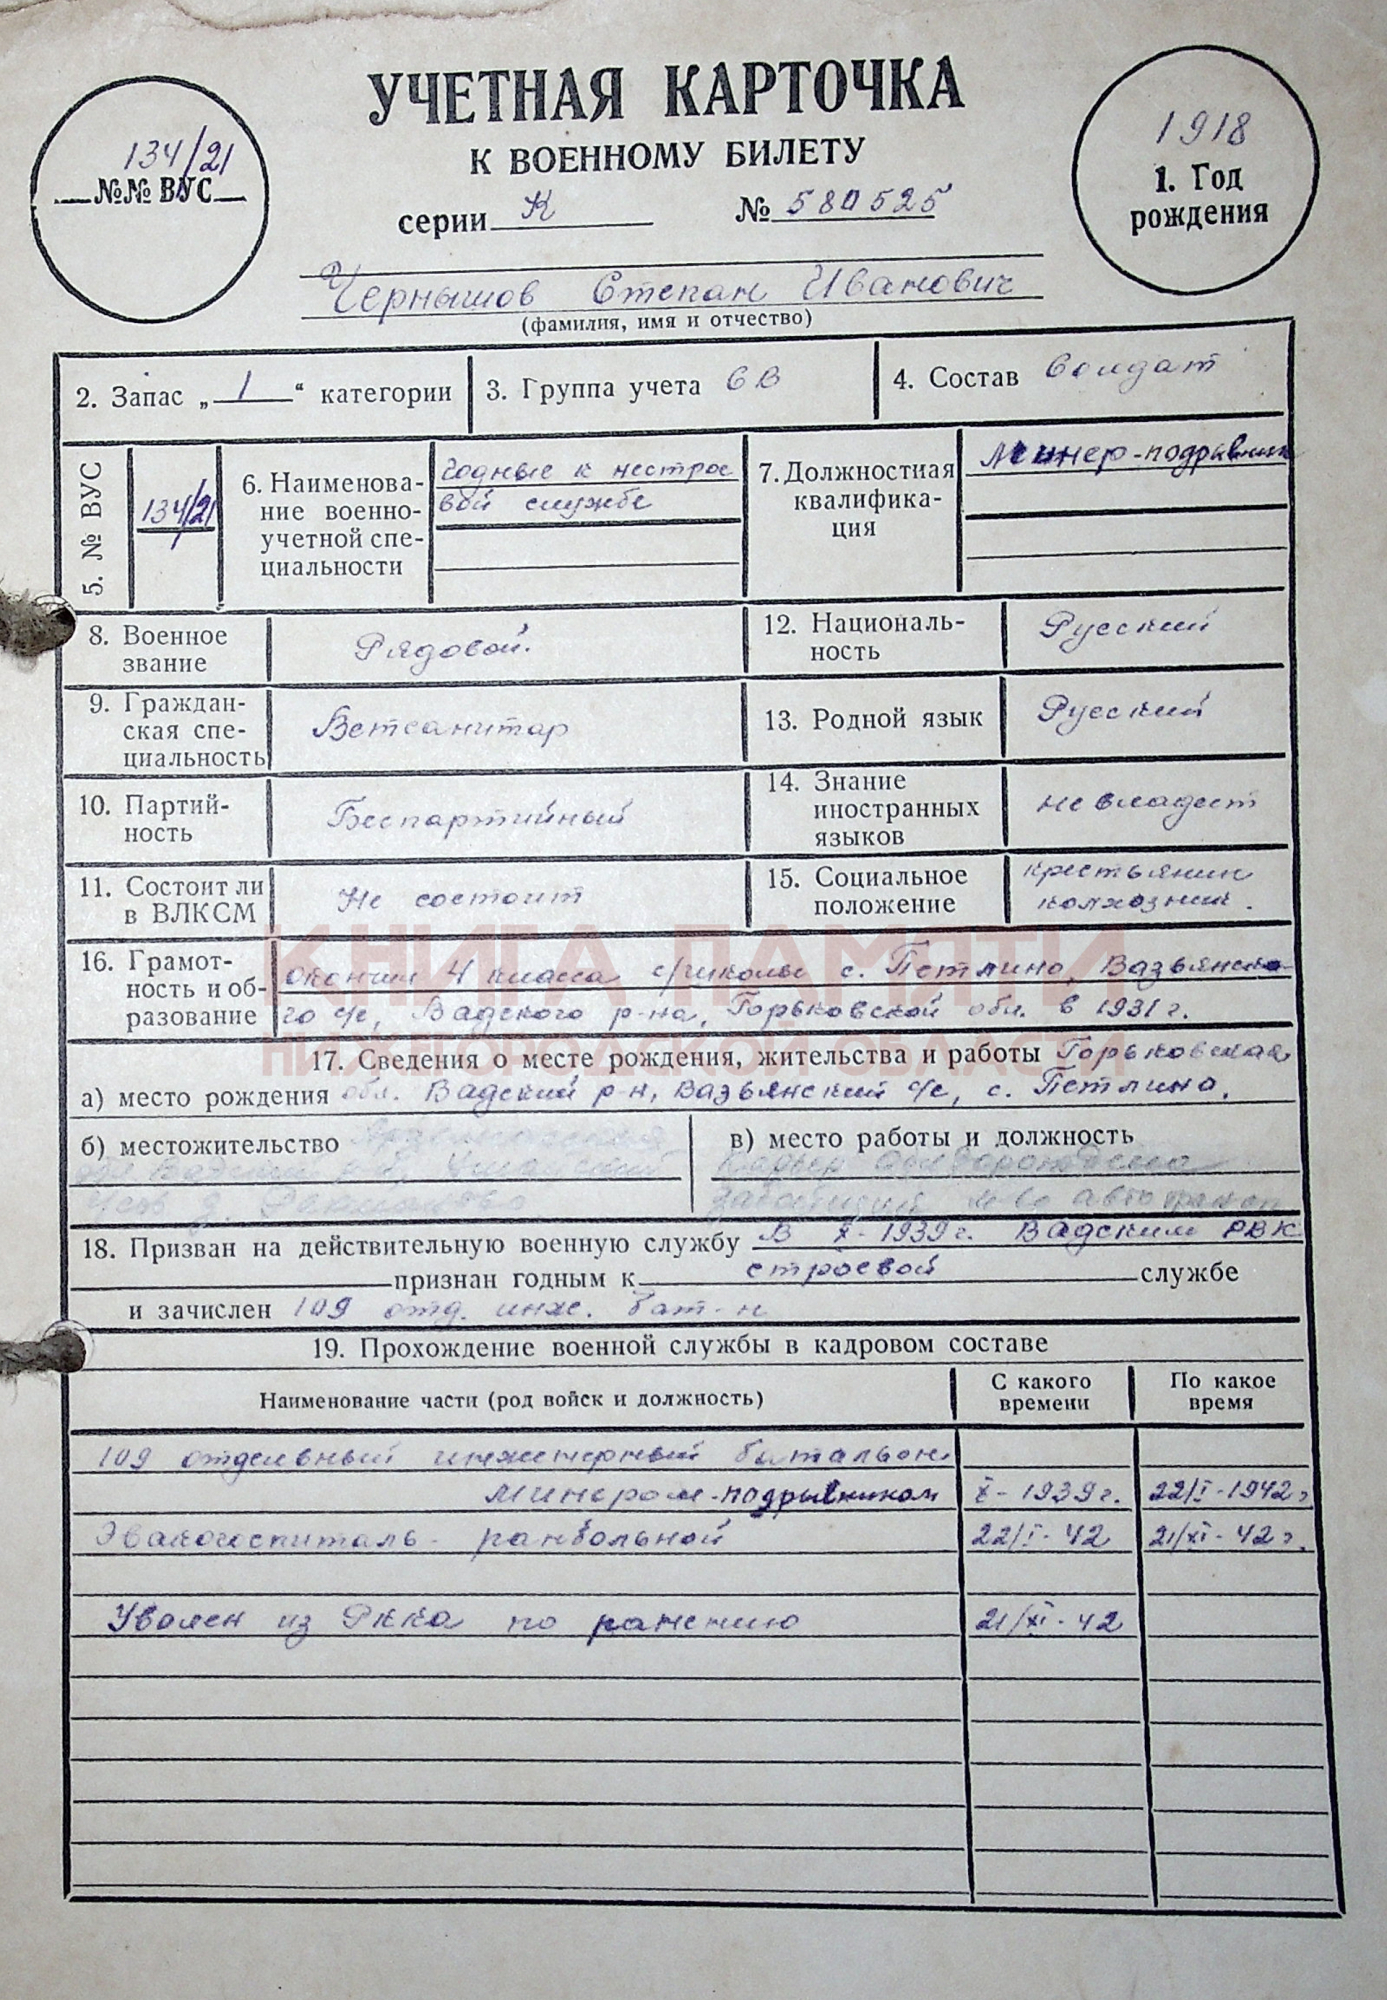 УЧЕТНАЯ КАРТОЧКА
К ВОЕННОМУ БИЛЕТУ
серии К № 580525
134/21
№№ ВУС
1918
1. Год
рождения
Чернышов Степан Иванович
(фамилия, имя и отчество)
2. Запас „ 1 “ категории
3. Группа учета СВ
4. Состав Солдат
5. № ВУС
134/21
6. Наименова-
ние военно-
учетной спе-
циальности
Годные к нестрое
вой службе
7. Должностная
квалифика-
ция
Минер-подрывник
8. Военное
звание
Рядовой.
12. Националь-
ность
Русский
9. Граждан-
ская спе-
циальность
Ветсанитар
13. Родной язык
Русский
10. Партий-
ность
Беспартийный
14. Знание
иностранных
языков
не владеет
11. Состоит ли
в ВЛКСМ
Не состоит
15. Социальное
положение
крестьянин
колхозник.
КНИГА ПАМЯТИ
НИЖЕГОРОДСКОЙ ОБЛАСТИ
16. Грамот-
ность и об-
разование
окончил 4 класса с/школы с. Петлино, Вазьянско-
го с/с, Вадского р-на, Горьковской обл. в 1931 г.
17. Сведения о месте рождения, жительства и работы Горьковская
а) место рождения обл. Вадский р-н, Вазьянский с/с, с. Петлино.
б) местожительство
обл. Вадский
в) место работы и должность
Карьер
18. Призван на действительную военную службу В X-1939 г. Вадским РВК
признан годным к строевой службе
и зачислен 109 отд. инж. бат-н
19. Прохождение военной службы в кадровом составе
Наименование части (род войск и должность)
С какого
времени
По какое
время
109 отдельный инженерный батальон
минером-подрывником X-1939 г. 22/I-1942 г
Эвакогоспиталь - ранбольной 22/I-42 21/XI-42 г.
Уволен из РККА по ранению 21/XI-42